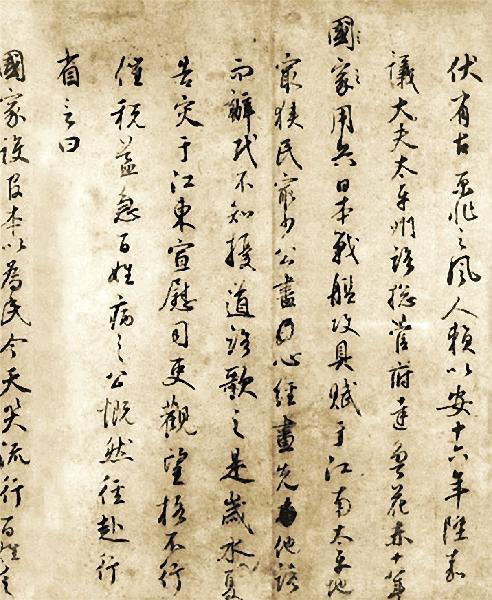 伏有古之風人賴以安十六年陞嘉
議大夫太平州路總管府達魯花赤十年
國家用兵日本戰艦攻具賦于江南太平地
㝡狹民㝡少公盡心經畫先他路
而辦民不知擾道路歌之是歲水
告灾于江東宣慰司吏觀望格不行
催税益急百姓病之公慨然徃赴行
省言曰
國家設官本以為民今天災流行百姓